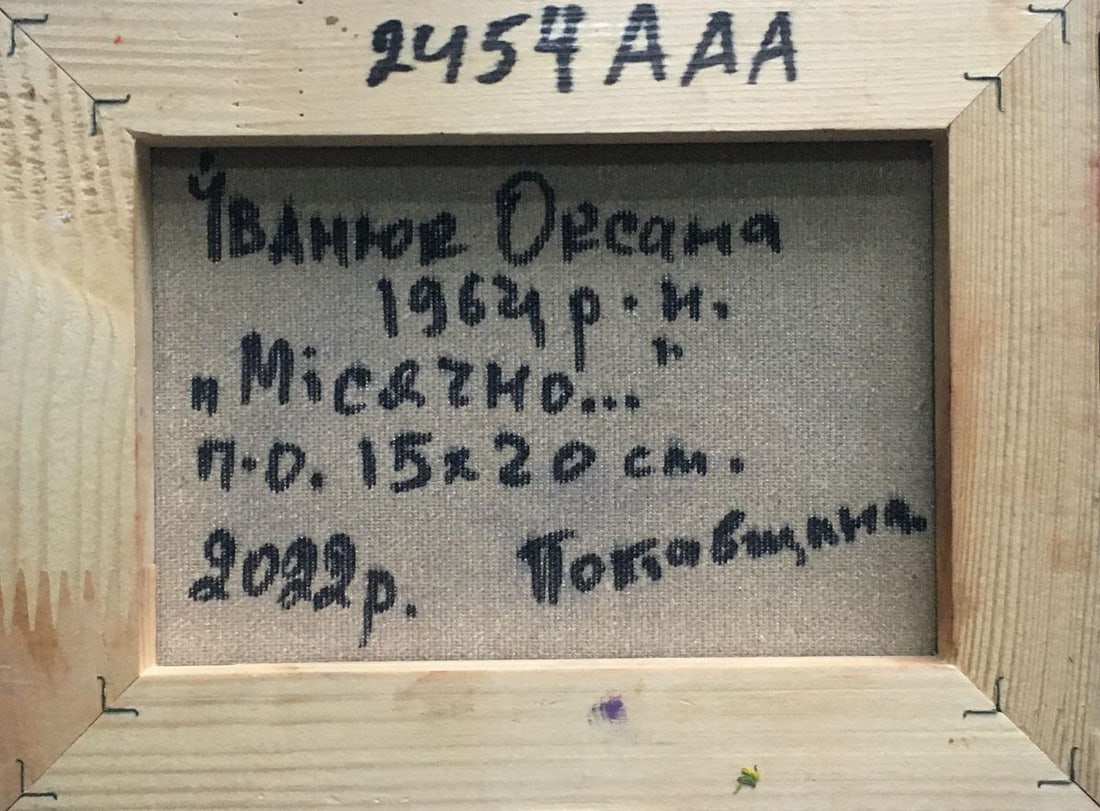 2454 AAA
Іванюк Оксана
1964 р.н.
„Місячно..."
п.о. 15х20 см.
2022р. Потавщина.